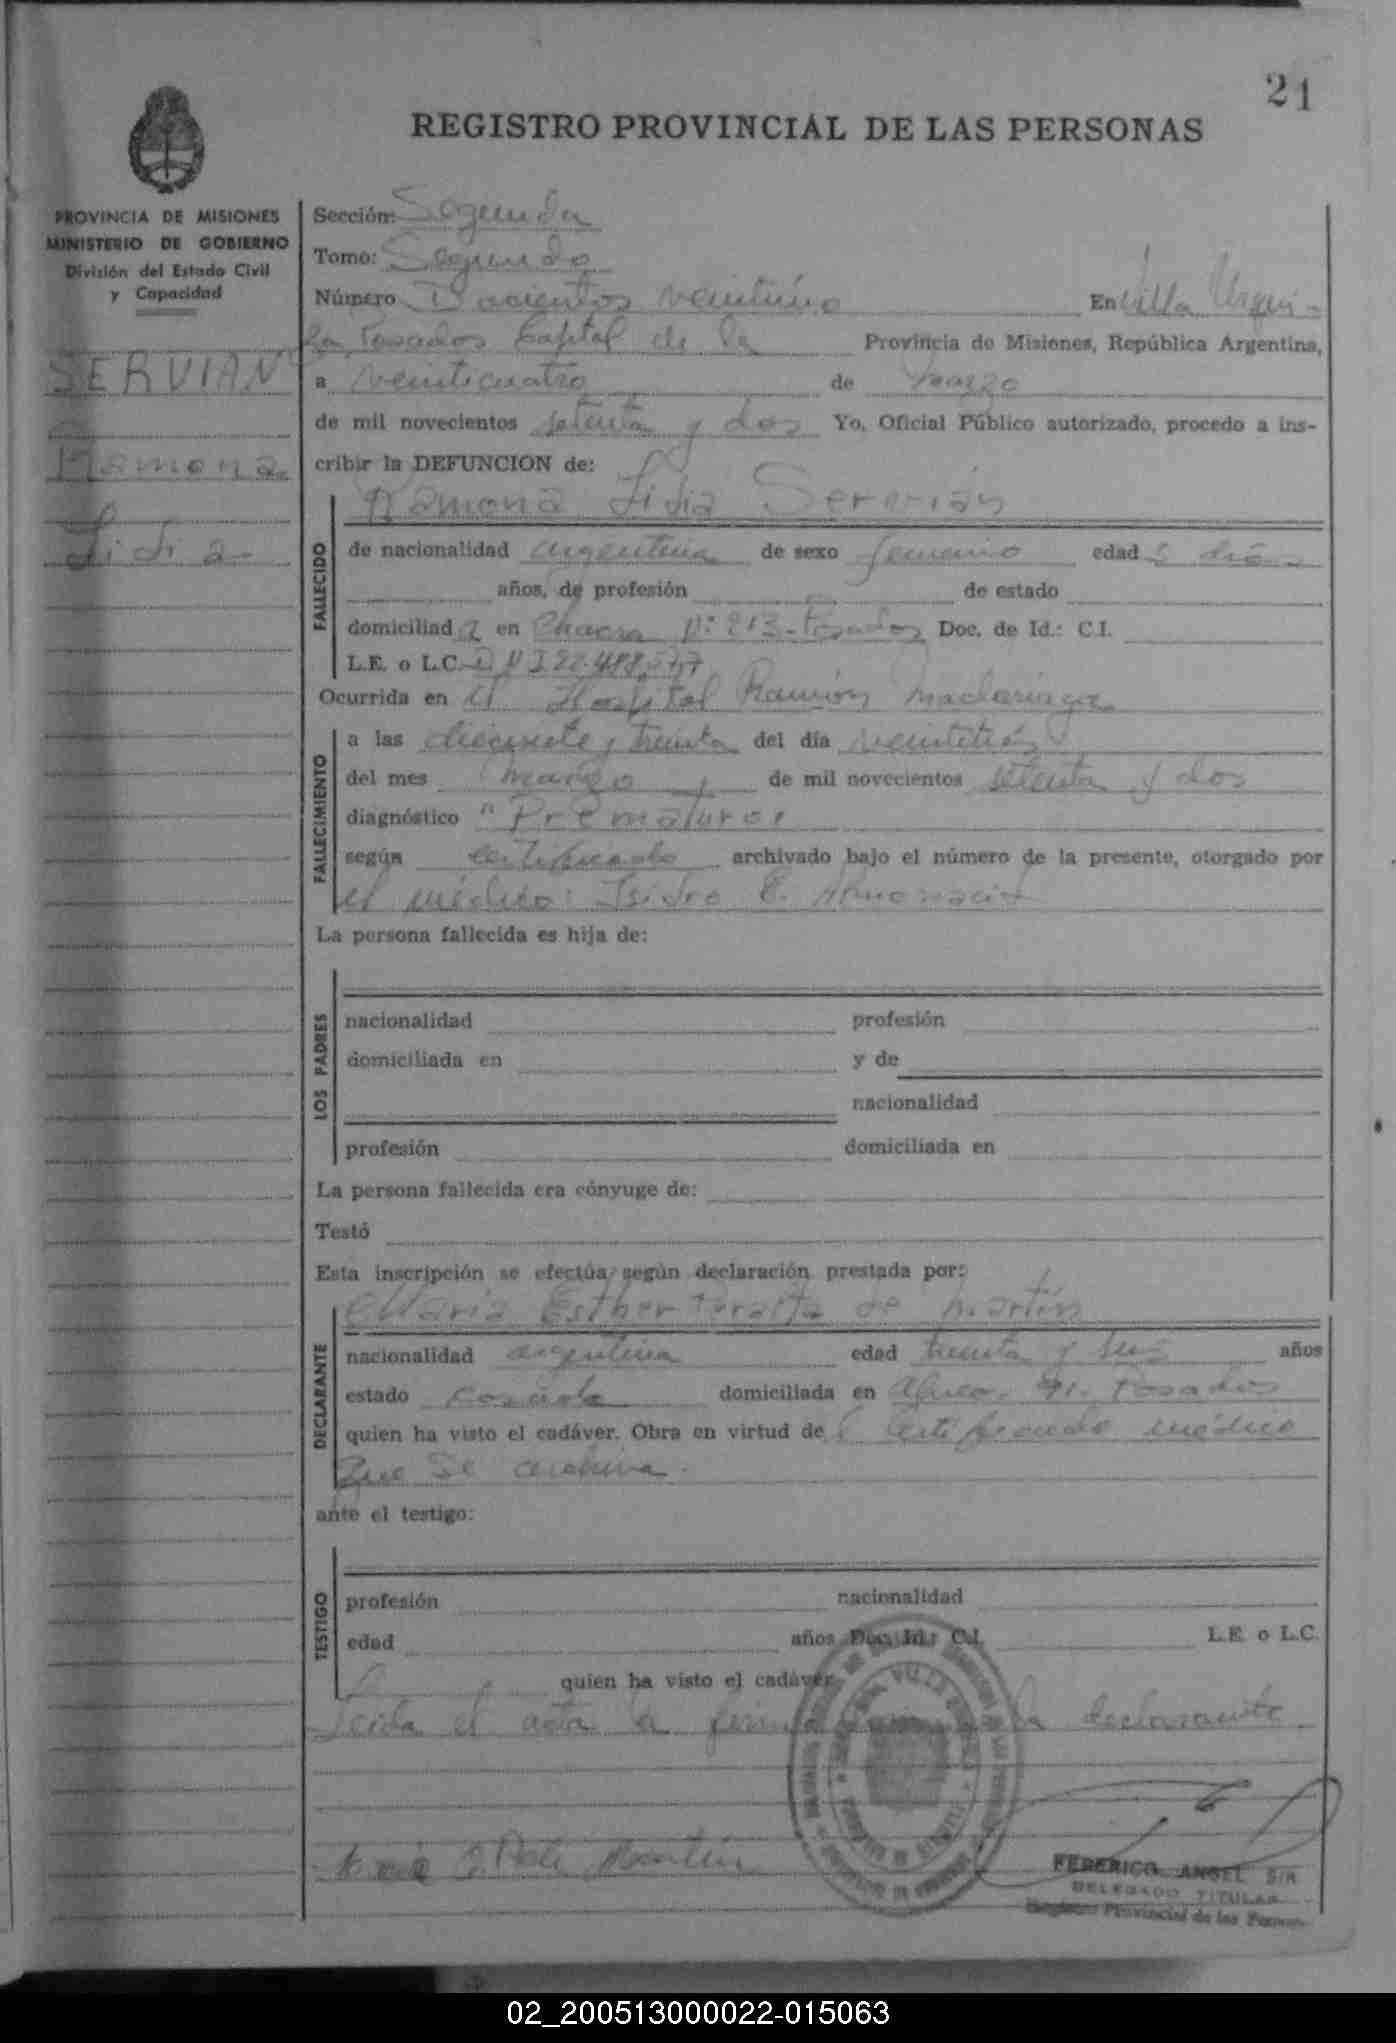 21
REGISTRO PROVINCIAL DE LAS PERSONAS
PROVINCIA DE MISIONES
MINISTERIO DE GOBIERNO
División del Estado Civil
y Capacidad
SERVIAN
Ramona
Lidia
Sección: Segunda
Tomo: Segundo
Número Docientos veintiuno En Villa Urqui-
za Posadas Capital de la Provincia de Misiones, República Argentina,
a veinticuatro de marzo
de mil novecientos setenta y dos Yo, Oficial Público autorizado, procedo a ins-
cribir la DEFUNCION de:
Ramona Lidia Servián
FALLECIDO
de nacionalidad argentina de sexo femenino edad 5 días
años, de profesión de estado
domiciliada en Chacra Nº 213-Posadas Doc. de Id.: C.I.
L.E. o L.C. D N I 22.488.577
Ocurrida en el Hospital Ramón Madariaga
FALLECIMIENTO
a las diecisiete y treinta del día veintitrés
del mes marzo de mil novecientos setenta y dos
diagnóstico "Prematuro"
según certificado archivado bajo el número de la presente, otorgado por
el médico: Isidro E.
La persona fallecida es hija de:
LOS PADRES
nacionalidad profesión
domiciliada en y de
nacionalidad
profesión domiciliada en
La persona fallecida era cónyuge de:
Testó
Esta inscripción se efectúa según declaración prestada por:
María Esther Peralta de Martín
DECLARANTE
nacionalidad argentina edad treinta y seis años
estado casada domiciliada en Posadas
quien ha visto el cadáver. Obra en virtud del certificado médico
que se archiva.
ante el testigo:
TESTIGO
profesión nacionalidad
edad años Doc. Id.: C.I. L.E. o L.C.
quien ha visto el cadáver
Leida el acta la firma la declarante
Martín
FEDERICO ANGEL
DELEGADO TITULAR
Registro Provincial de las Personas
02_200513000022-015063